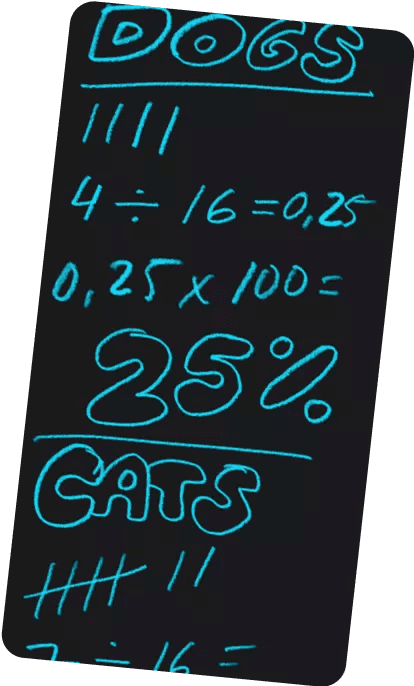 DOGS
||||
4 ÷ 16 = 0,25
0,25 x 100 =
25%
CATS
|||| ||
7 ÷ 16 =